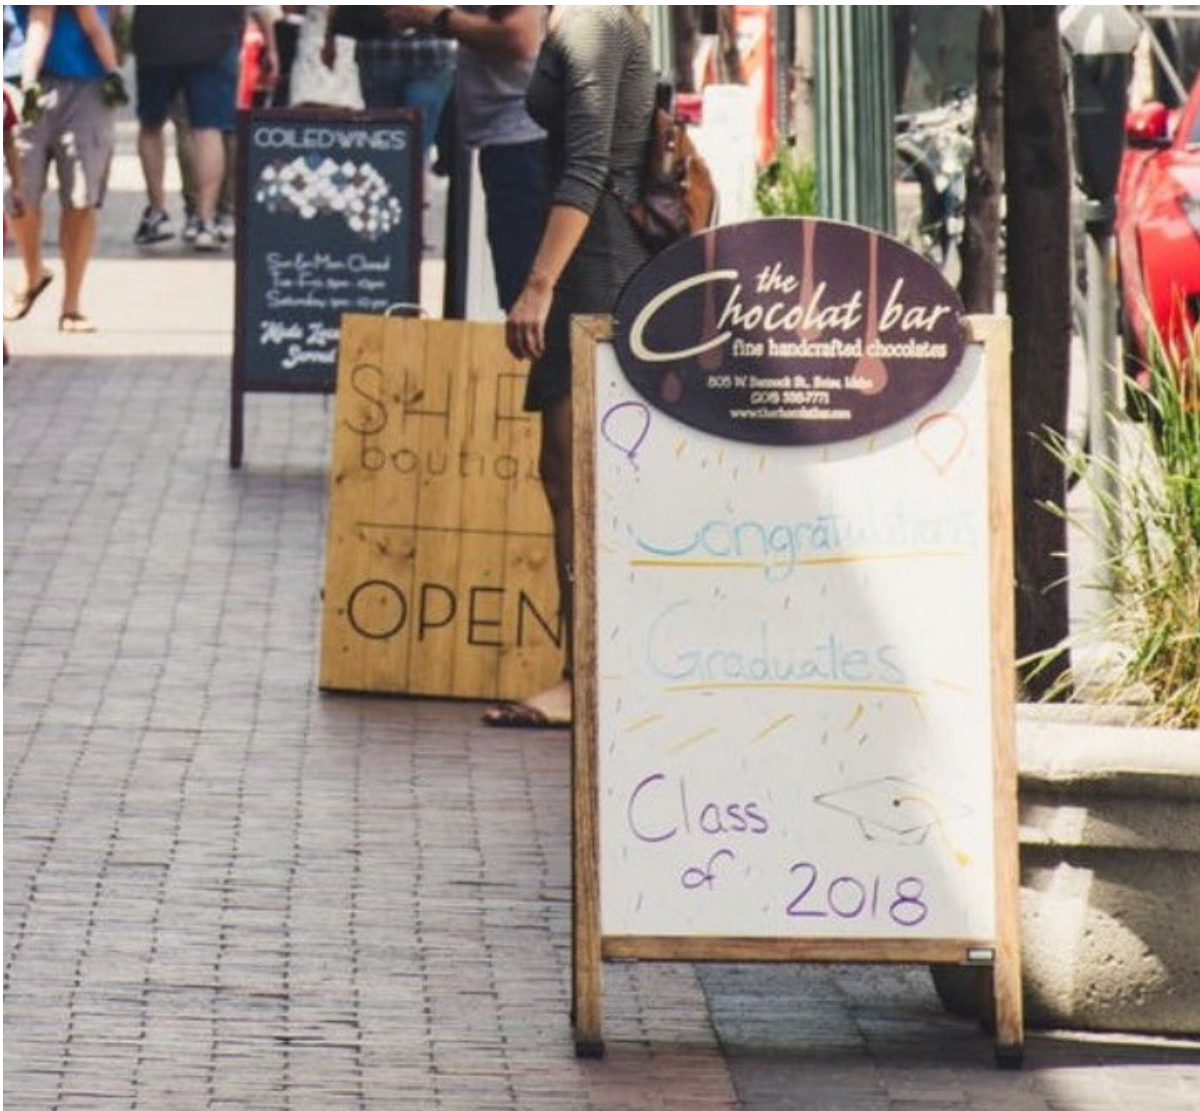 COILED WINES
Sun & Mon Closed
Tue-Fri
Saturday
Served
SHIF
boutiqu
OPEN
the
Chocolat bar
fine handcrafted chocolates
805 W Bannock St., Boise, Idaho
(208) 338-7771
www.thechocolatbar.com
Congratulations
Graduates
Class
of 2018